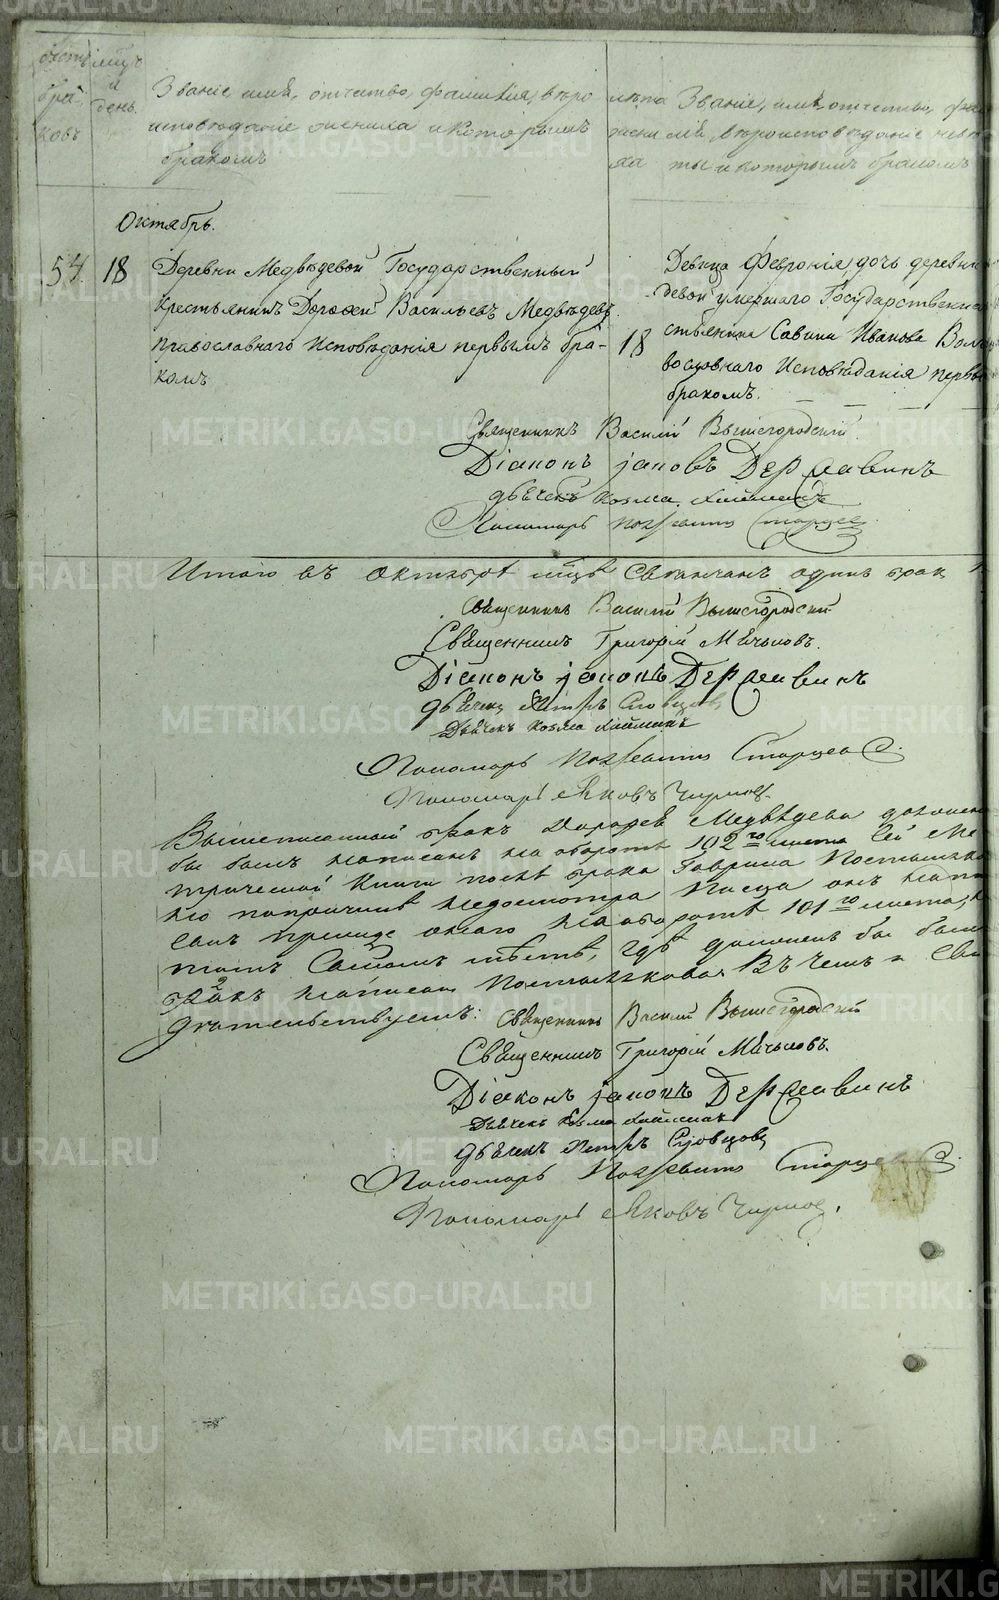 мѣсяцъ
и
день.
Званіе, имя, отчество, фамилія, вѣро
исповѣданіе жениха и которымъ
бракомъ
лѣта
жени
ха
Званіе, имя, отчество, фа
мія, вѣроисповѣданіе невѣс
ты и которымъ бракомъ
Октябрь.
54. 18
Деревни Медвѣдевой Государственный
крестьянинъ Дорофей Васильевъ Медвѣдевъ
православнаго исповѣданія первымъ бра-
комъ
18
Девица Феврония, дочь деревни
девой умершаго Государственна
стьянина Савина Иванова
вославнаго Исповѣданія первы
бракомъ.
Священникъ Василій Вышегородскій
Діаконъ Іаковъ Державинъ
дьячекъ Козма
Пономарь Старцев
Итого въ октябрѣ мцѣ свенчанъ одинъ брак
Священникъ Василій Вышегородскій
Священникъ Григорій Мячьковъ.
Діаконъ Іаковъ Державинъ
дьячекъ Петръ Словцовъ
Дьячекъ Козма
Пономарь Старцев
Пономарь Яковъ Чирков
Вышеписанный бракъ Дорофея Медвѣдева долженъ
бы былъ написанъ на оборотѣ 102го листа сей Ме
трической Книги послѣ брака Гаврила
но по причинѣ недосмотра писца онъ напи
санъ прежде онаго на оборотѣ 101го листа, на
томъ самомъ мѣстѣ, гдѣ долженъ бы былъ
бракъ написан Въ чемъ и Сви
дѣтельствуемъ: Священникъ Василій Вышегородскій
Священникъ Григорій Мячьковъ.
Діаконъ Іаковъ Державинъ
Дьячекъ Козма
дьячекъ Петръ Словцовъ
Пономарь Старцев
Пономарь Яковъ Чирков.
METRIKI.GASO-URAL.RU